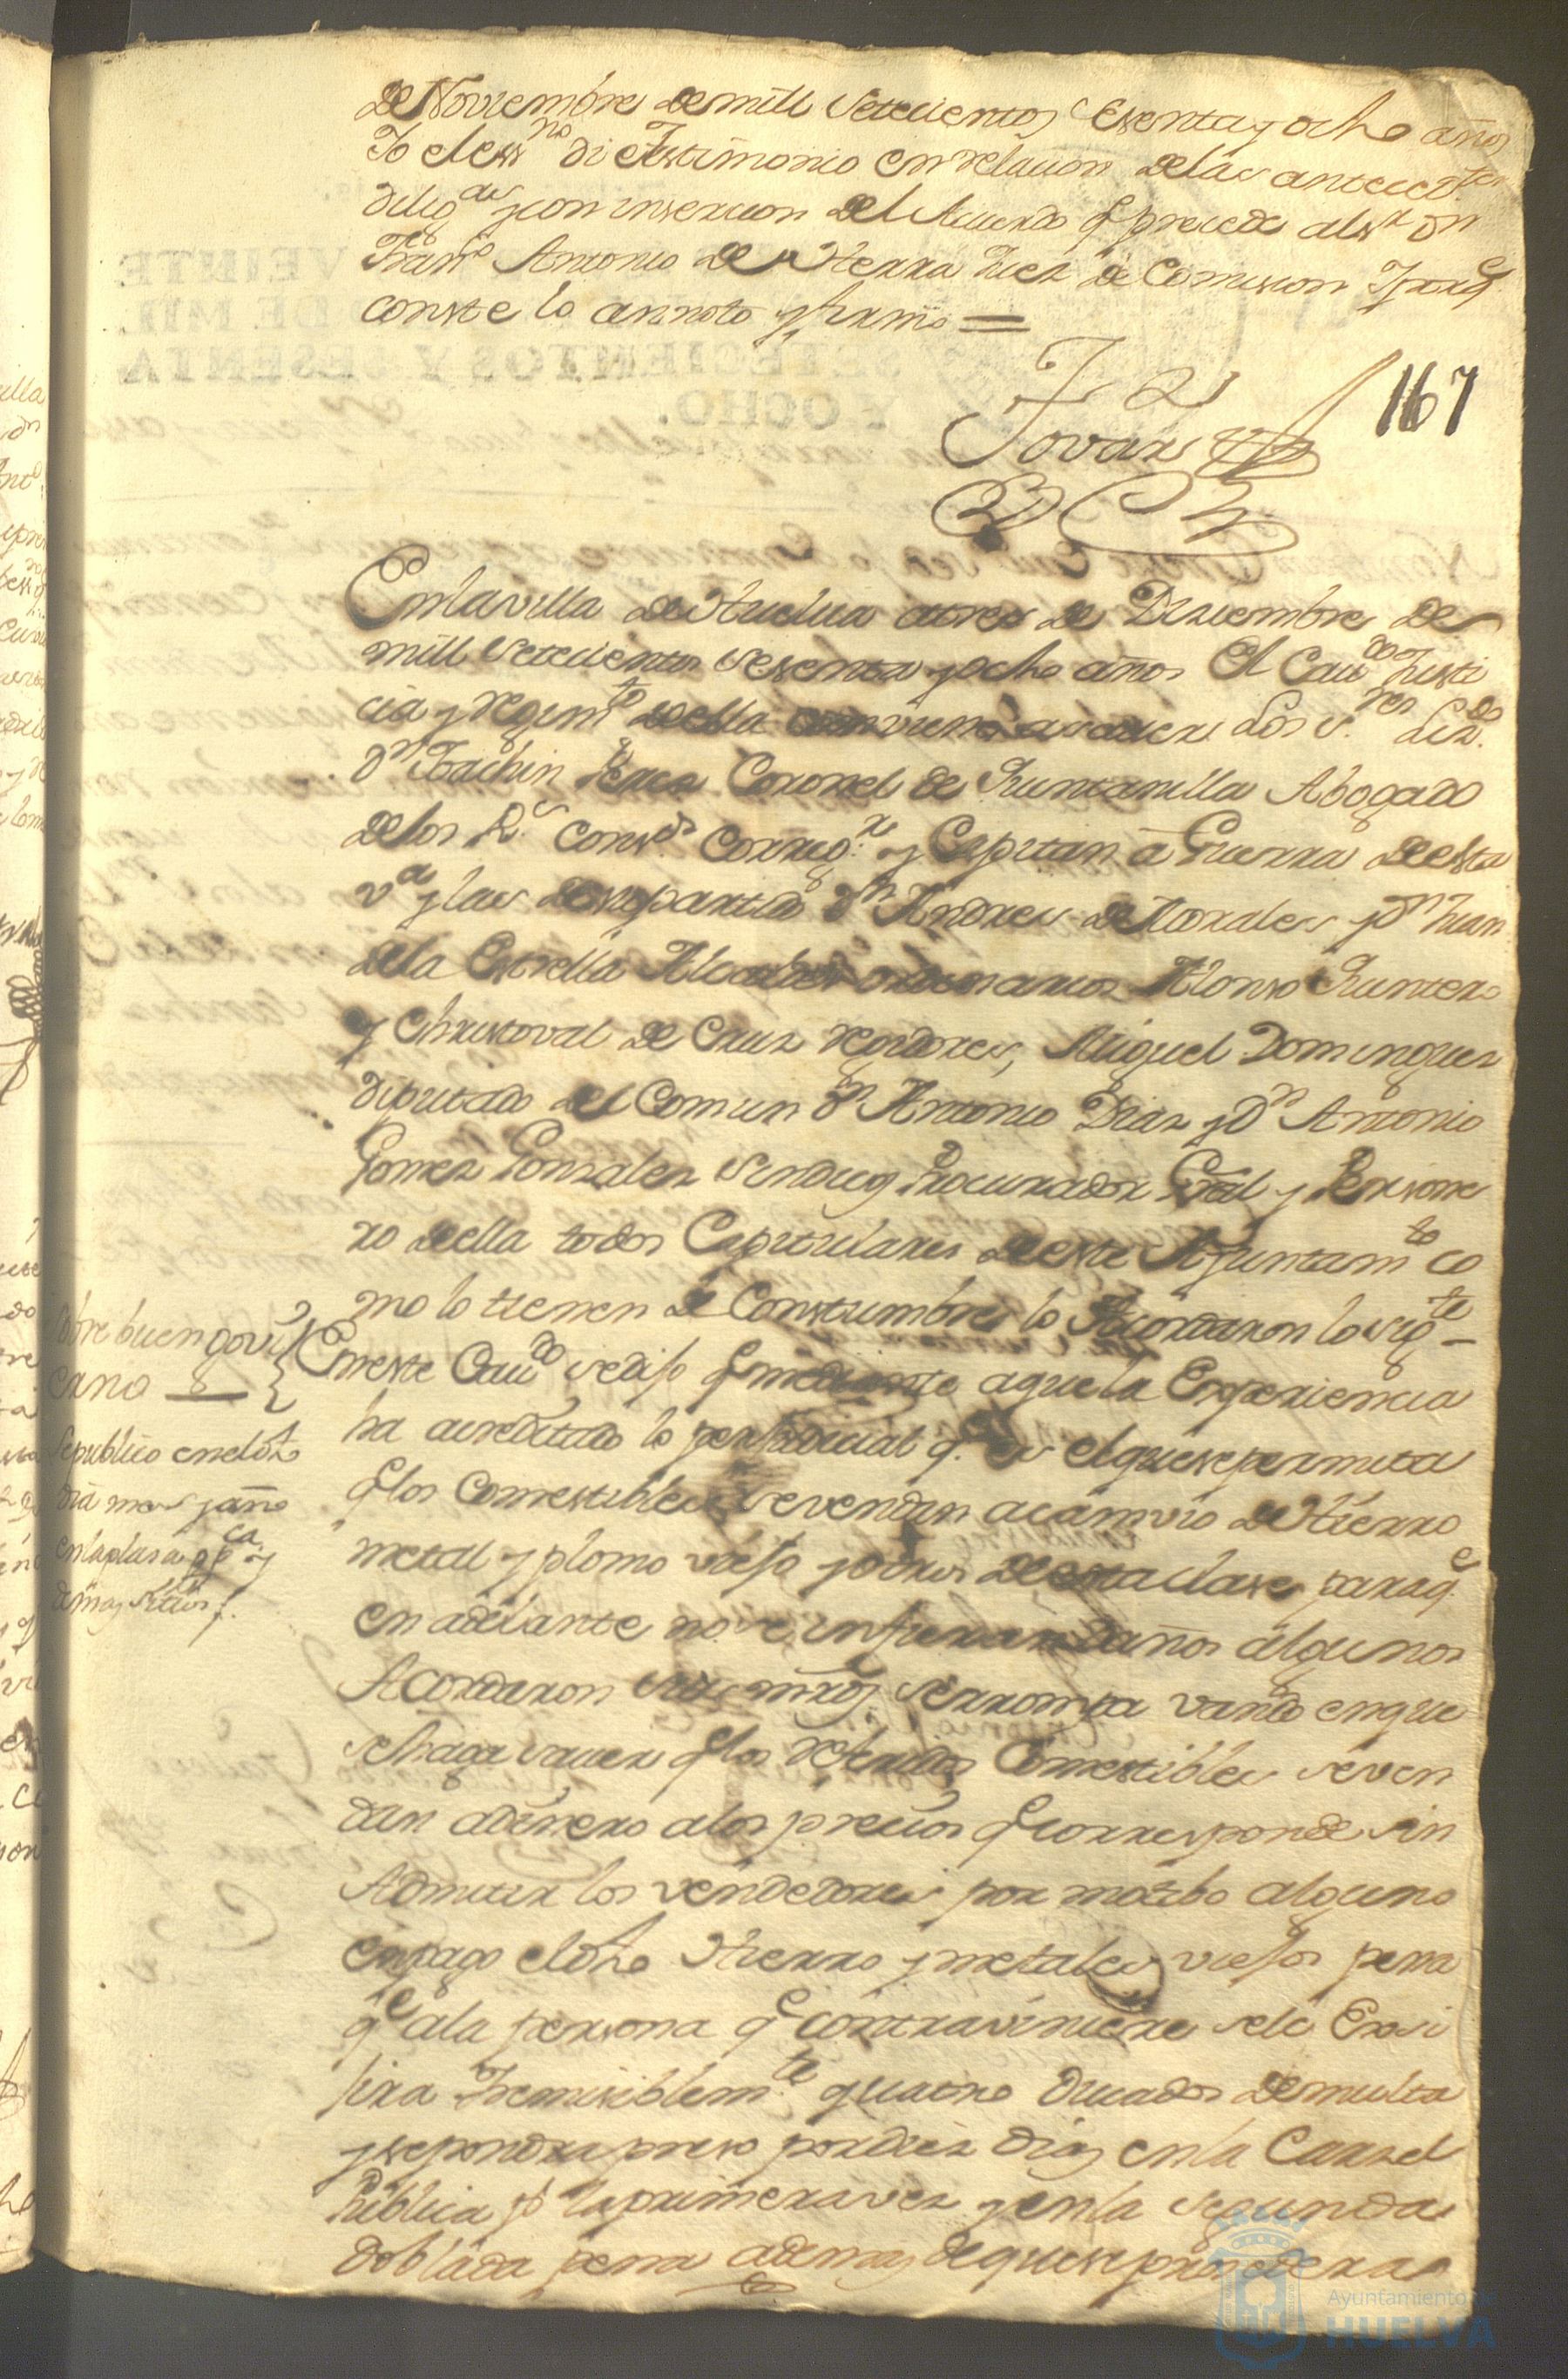 de Noviembre de mill setecientos sesenta y ocho años
Yo el ess.no di testimonio en relacion de las anteced.tes
dilig.as y con insercion del Acuerdo q precede al s.r dn
Fran.co Antonio de Herra Juez de Comision Y para q.e
conste lo annoto y firmo =
Tovar
167
En la villa de Huelua a tres de Diziembre de
mill setecientos sesenta y ocho años El Cau.do Justi
cia y regim.to de ella combiene a sauer Los s.res Liz.do
d.n Joachin Perez Coronel de Quintanilla Abogado
de los R.s Cons.s Correg.r y Capitan â Guerra de esta
v.a y las de su partido d.n Andres de Morales y d.n Juan
de la Estrella Alcaldes ordinarios Alonso Quintero
y Christoval de Cruz rejidores, Miguel Dominguez
diputado del Comun d.n Antonio Diaz y D.n Antonio
Gomez Gonzalez Sindicos Procurador Gral y Persone
ro de ella todos Capitulares de este Ayuntam.to co
mo lo tienen de Constumbre lo Acordaron lo sig.te
Sobre buen govi
erno
En este Cau.do se dijo q mediante a que la Experiencia
ha acreditado lo perjudicial q.e es el que se permita
Se publico en el dho
dia mes y año
en la plasa p.ca y
demas sitios
q los Comestibles se vendan a camvio de Hierro
metal y plomo viejo y otros de esta clase para q.e
en adelante no se infieran daños algunos
Acordaron sus mrds. se rompa vando en que
se haga sauer q los referidos Comestibles se ven
dan a dinero a los precios q corresponde sin
Admitir los vendedores por motibo alguno
en pago el dho Hierro y metales viejos pena
q.e a la persona q.e contraviniere se le Exsi
jira Yremisiblem.te quatro ducados de multa
y se pondra preso por diez dias en la Carzel
Publica p.r la primera vez y en la segunda
doblada pena ademas de que se prosedera
Ayuntamiento de
HUELVA